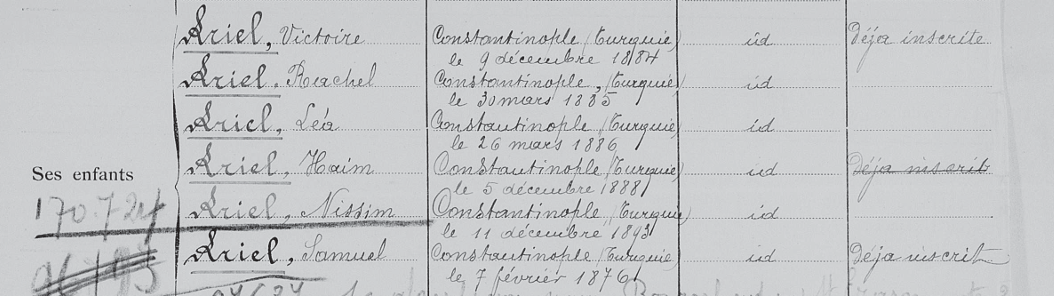 Ariel, Victoire Constantinople (Turquie) id Déja inscrite
le 9 décembre 1884
Ariel, Rachel Constantinople, (Turquie) id
le 30 mars 1885
Ariel, Léa Constantinople (Turquie) id
le 26 mars 1886
Ses enfants Ariel, Haim Constantinople (Turquie) id Déja inscrit
le 5 décembre 1888
170.724 Ariel, Nissim Constantinople (Turquie) id
le 11 décembre 1893
Ariel, Samuel Constantinople (Turquie) id Déja inscrit
le 7 février 1876